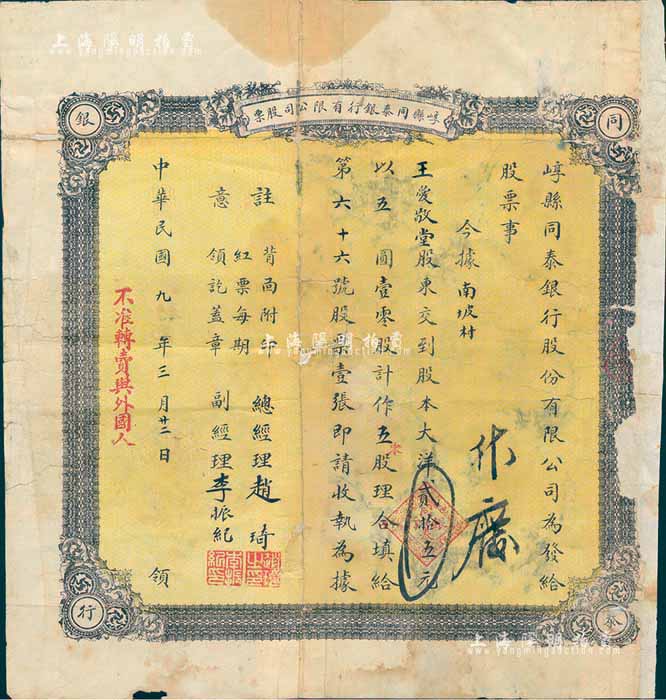 上海陽明拍賣
www.yangmingauction.com
崞縣同泰銀行有限公司股票
同
泰
銀
行
崞縣同泰銀行股份有限公司為發給
股票事
今據南坡村
王愛敬堂股東交到股本大洋貳拾五元
以五圓壹零股計作五股理合填給
第六十六號股票壹張即請收執為據
作廢
註意
背面附印
紅票每期
領訖蓋章
總經理趙琦
副經理李振紀
中華民國九年三月廿二日
領
不准轉賣與外國人
上海陽明拍賣
www.yangmingauction.com
上海陽明拍賣
www.yangmingauction.com